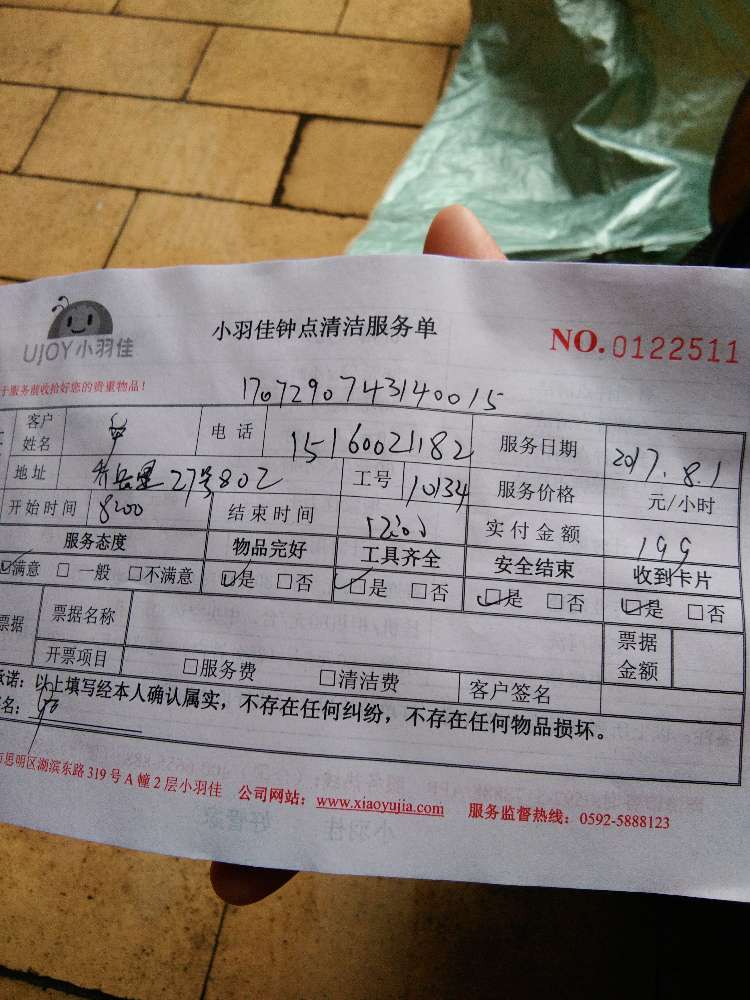 UJOY小羽佳
小羽佳钟点清洁服务单
NO.0122511
于服务前收拾好您的贵重物品!
1707290743140015
客户姓名 电话 15160021182 服务日期 2017.8.1
地址 27号802 工号 10134 服务价格 元/小时
开始时间 8:00 结束时间 12:00 实付金额 199
服务态度 物品完好 工具齐全 安全结束 收到卡片
满意 □一般 □不满意 □是 □否 □是 □否 □是 □否 □是 □否
票据 票据名称 票据金额
开票项目 □服务费 □清洁费 客户签名
承诺：以上填写经本人确认属实，不存在任何纠纷，不存在任何物品损坏。
名：
思明区湖滨东路319号A幢2层小羽佳 公司网站：www.xiaoyujia.com 服务监督热线：0592-5888123